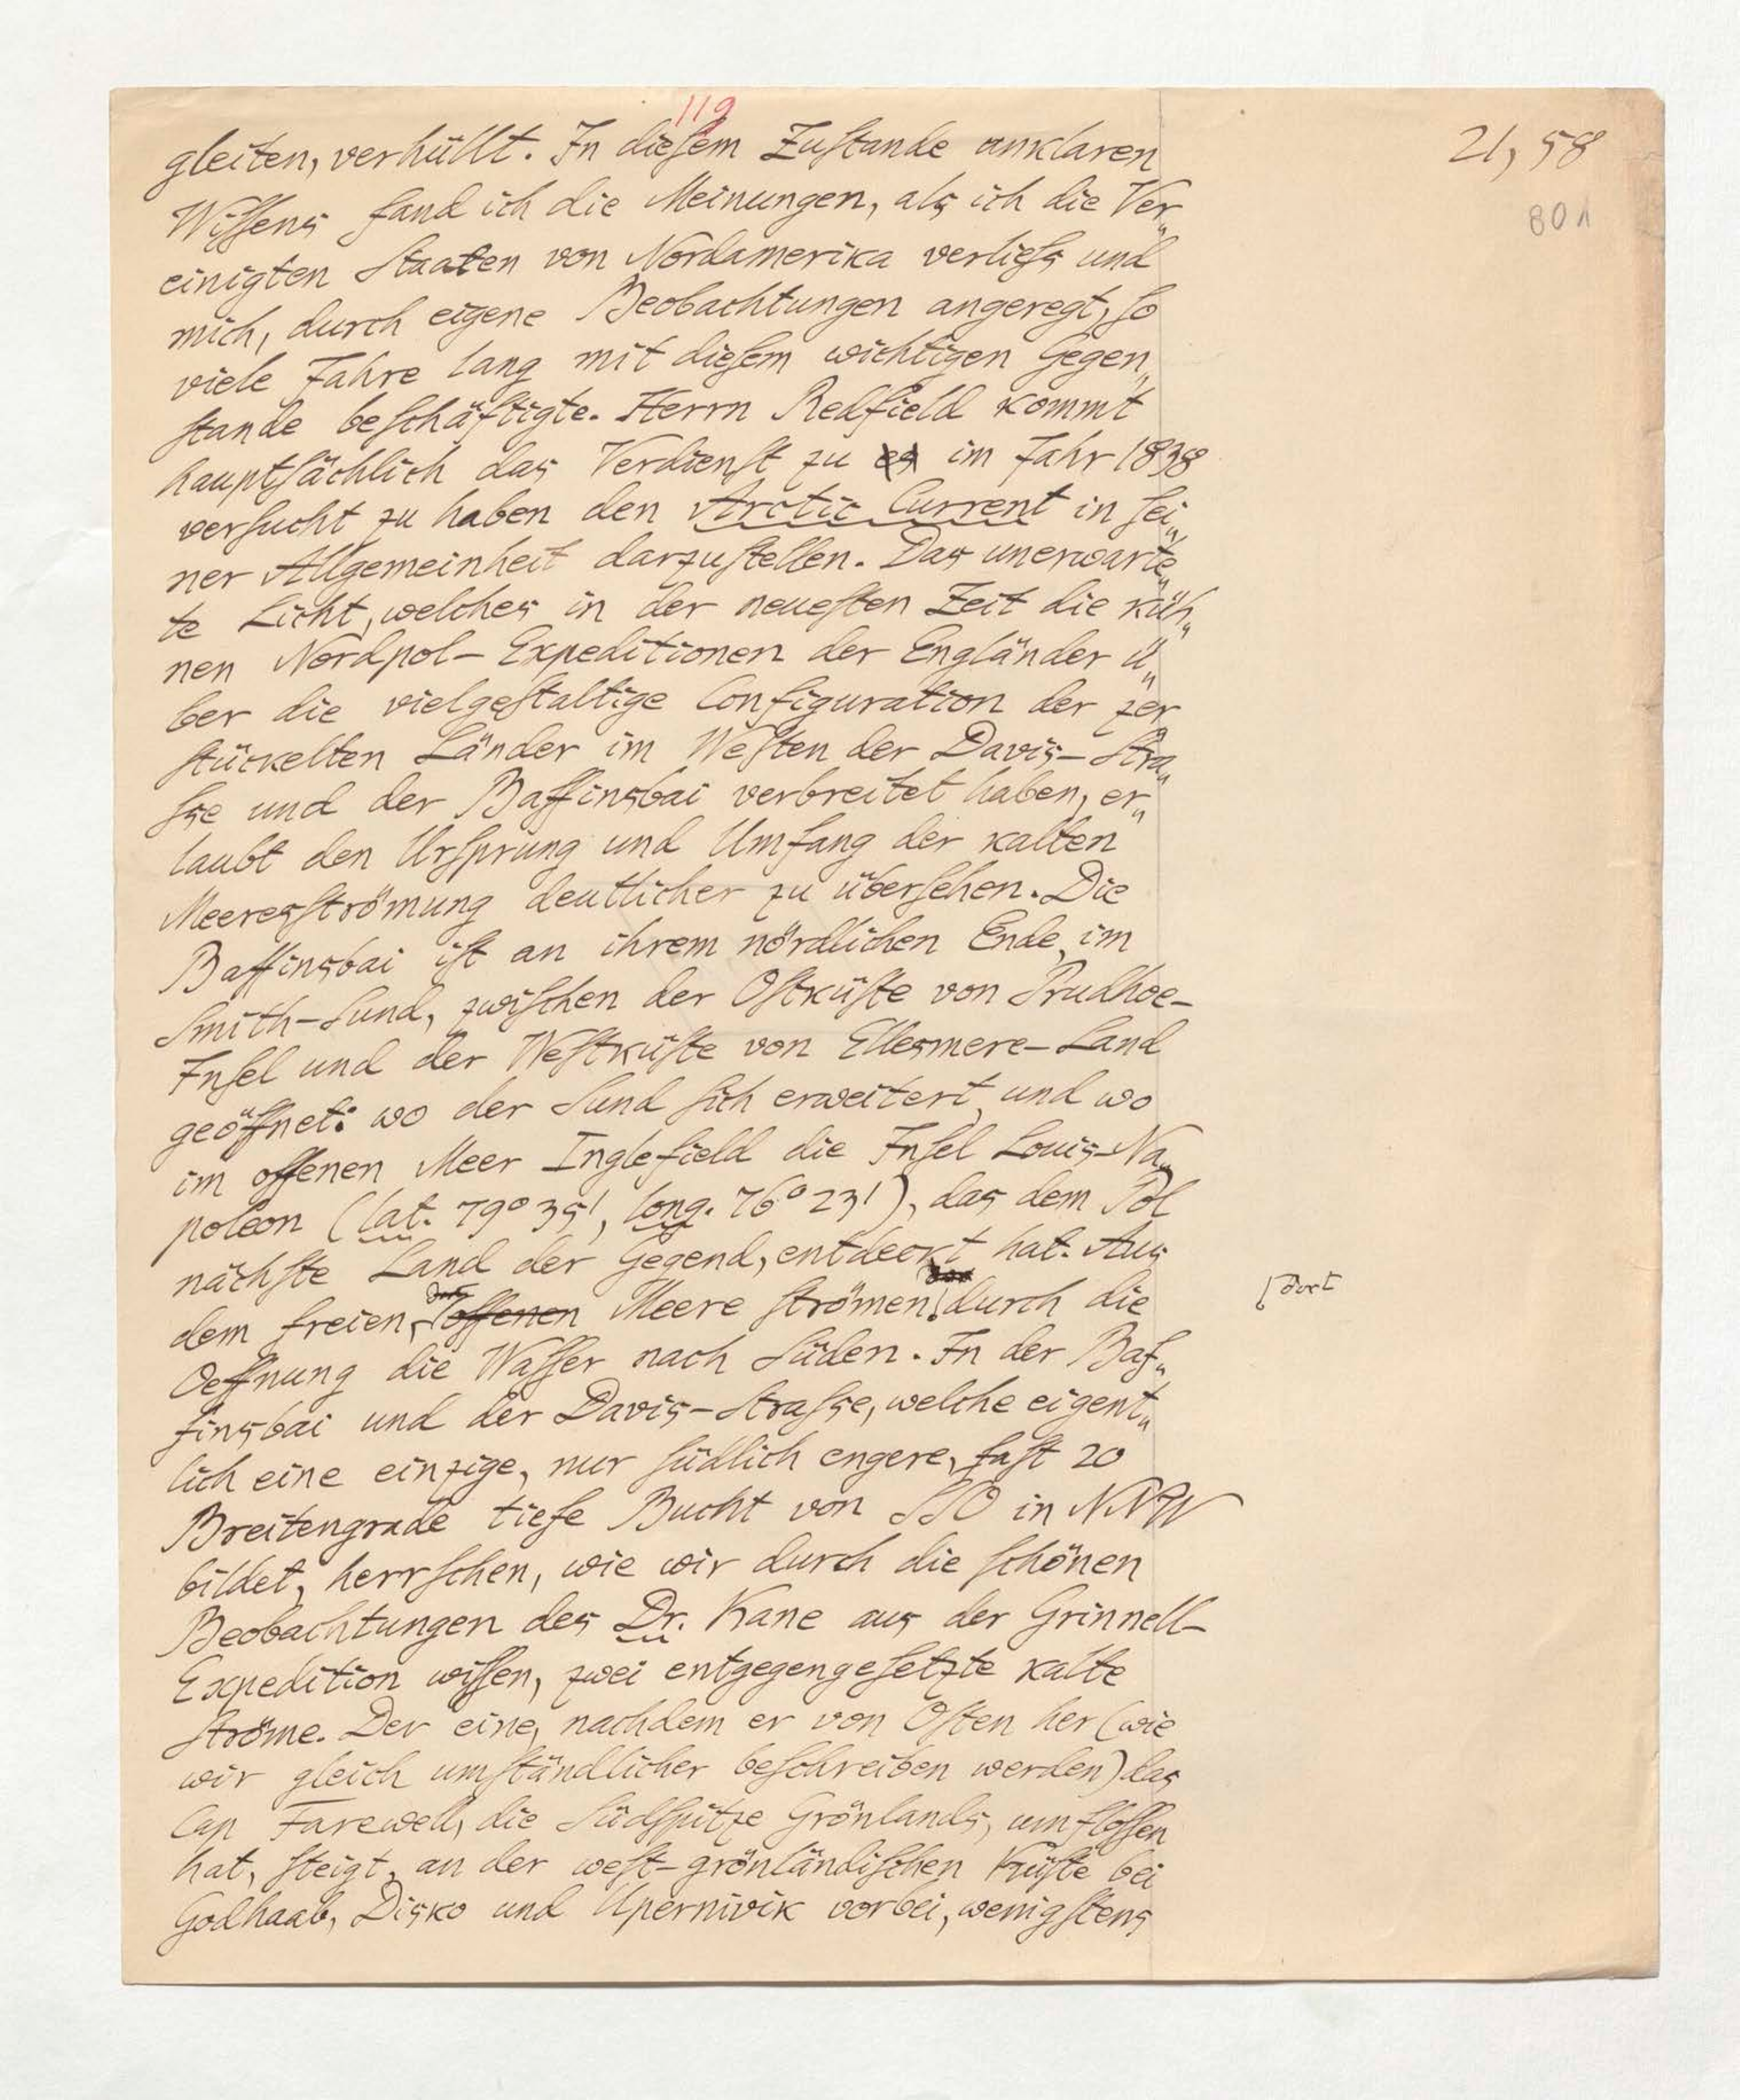 119
21, 58
80 1
gleiten, verhüllt. In dieſem Zuſtande unklaren
Wiſſens fand ich die Meinungen, als ich die Ver„
einigten Staaten von Nordamerika verlieſs und
mich, durch eigene Beobachtungen angeregt, ſo
viele Jahre lang mit dieſem wichtigen Gegen„
ſtande beſchäftigte. Herrn Redfield kommt
hauptſächlich das Verdienſt zu es im Jahr 1838
verſucht zu haben den Arctic Current in ſei„
ner Allgemeinheit darzuſtellen. Das unerwarte„
te Licht, welches in der neueſten Zeit die küh„
nen Nordpol-Expeditionen der Engländer ü„
ber die vielgeſtaltige Configuration der zer„
ſtückelten Länder im Weſten der Davis-Stra„
ſse und der Baffinsbai verbreitet haben, er„
laubt den Urſprung und Umfang der kalten
Meeresſtrömung deutlicher zu überſehen. Die
Baffinsbai iſt an ihrem nördlichen Ende, im
Smith-Sund, zwiſchen der Oſtküſte von Prudhoe-
Inſel und der Weſtküſte von Ellesmere-Land
geöffnet: wo der Sund ſich erweitert, und wo
im offenen Meer Inglefield die Inſel Louis-Na„
poleon (lat. 79° 35', long. 76° 23'), das dem Pol
nächſte Land der Gegend, entdeckt hat. Aus
dem freien, offenen Meere ſtrömen durch die
ſdort
Oeffnung die Waſſer nach Süden. In der Baf„
finsbai und der Davis-Straſse, welche eigent„
lich eine einzige, nur ſüdlich engere, faſt 20
Breitengrade tiefe Bucht von SSO in NNW
bildet, herrſchen, wie wir durch die ſchönen
Beobachtungen des Dr. Kane aus der Grinnell-
Expedition wiſſen, zwei entgegengeſetzte kalte
Ströme. Der eine, nachdem er von Oſten her (wie
wir gleich umſtändlicher beſchreiben werden) das
Cap Farewell, die Südſpitze Grönlands, umfloſſen
hat, ſteigt, an der weſt-grönländiſchen Küſte bei
Godhaab, Disko und Upernivik vorbei, wenigſtens